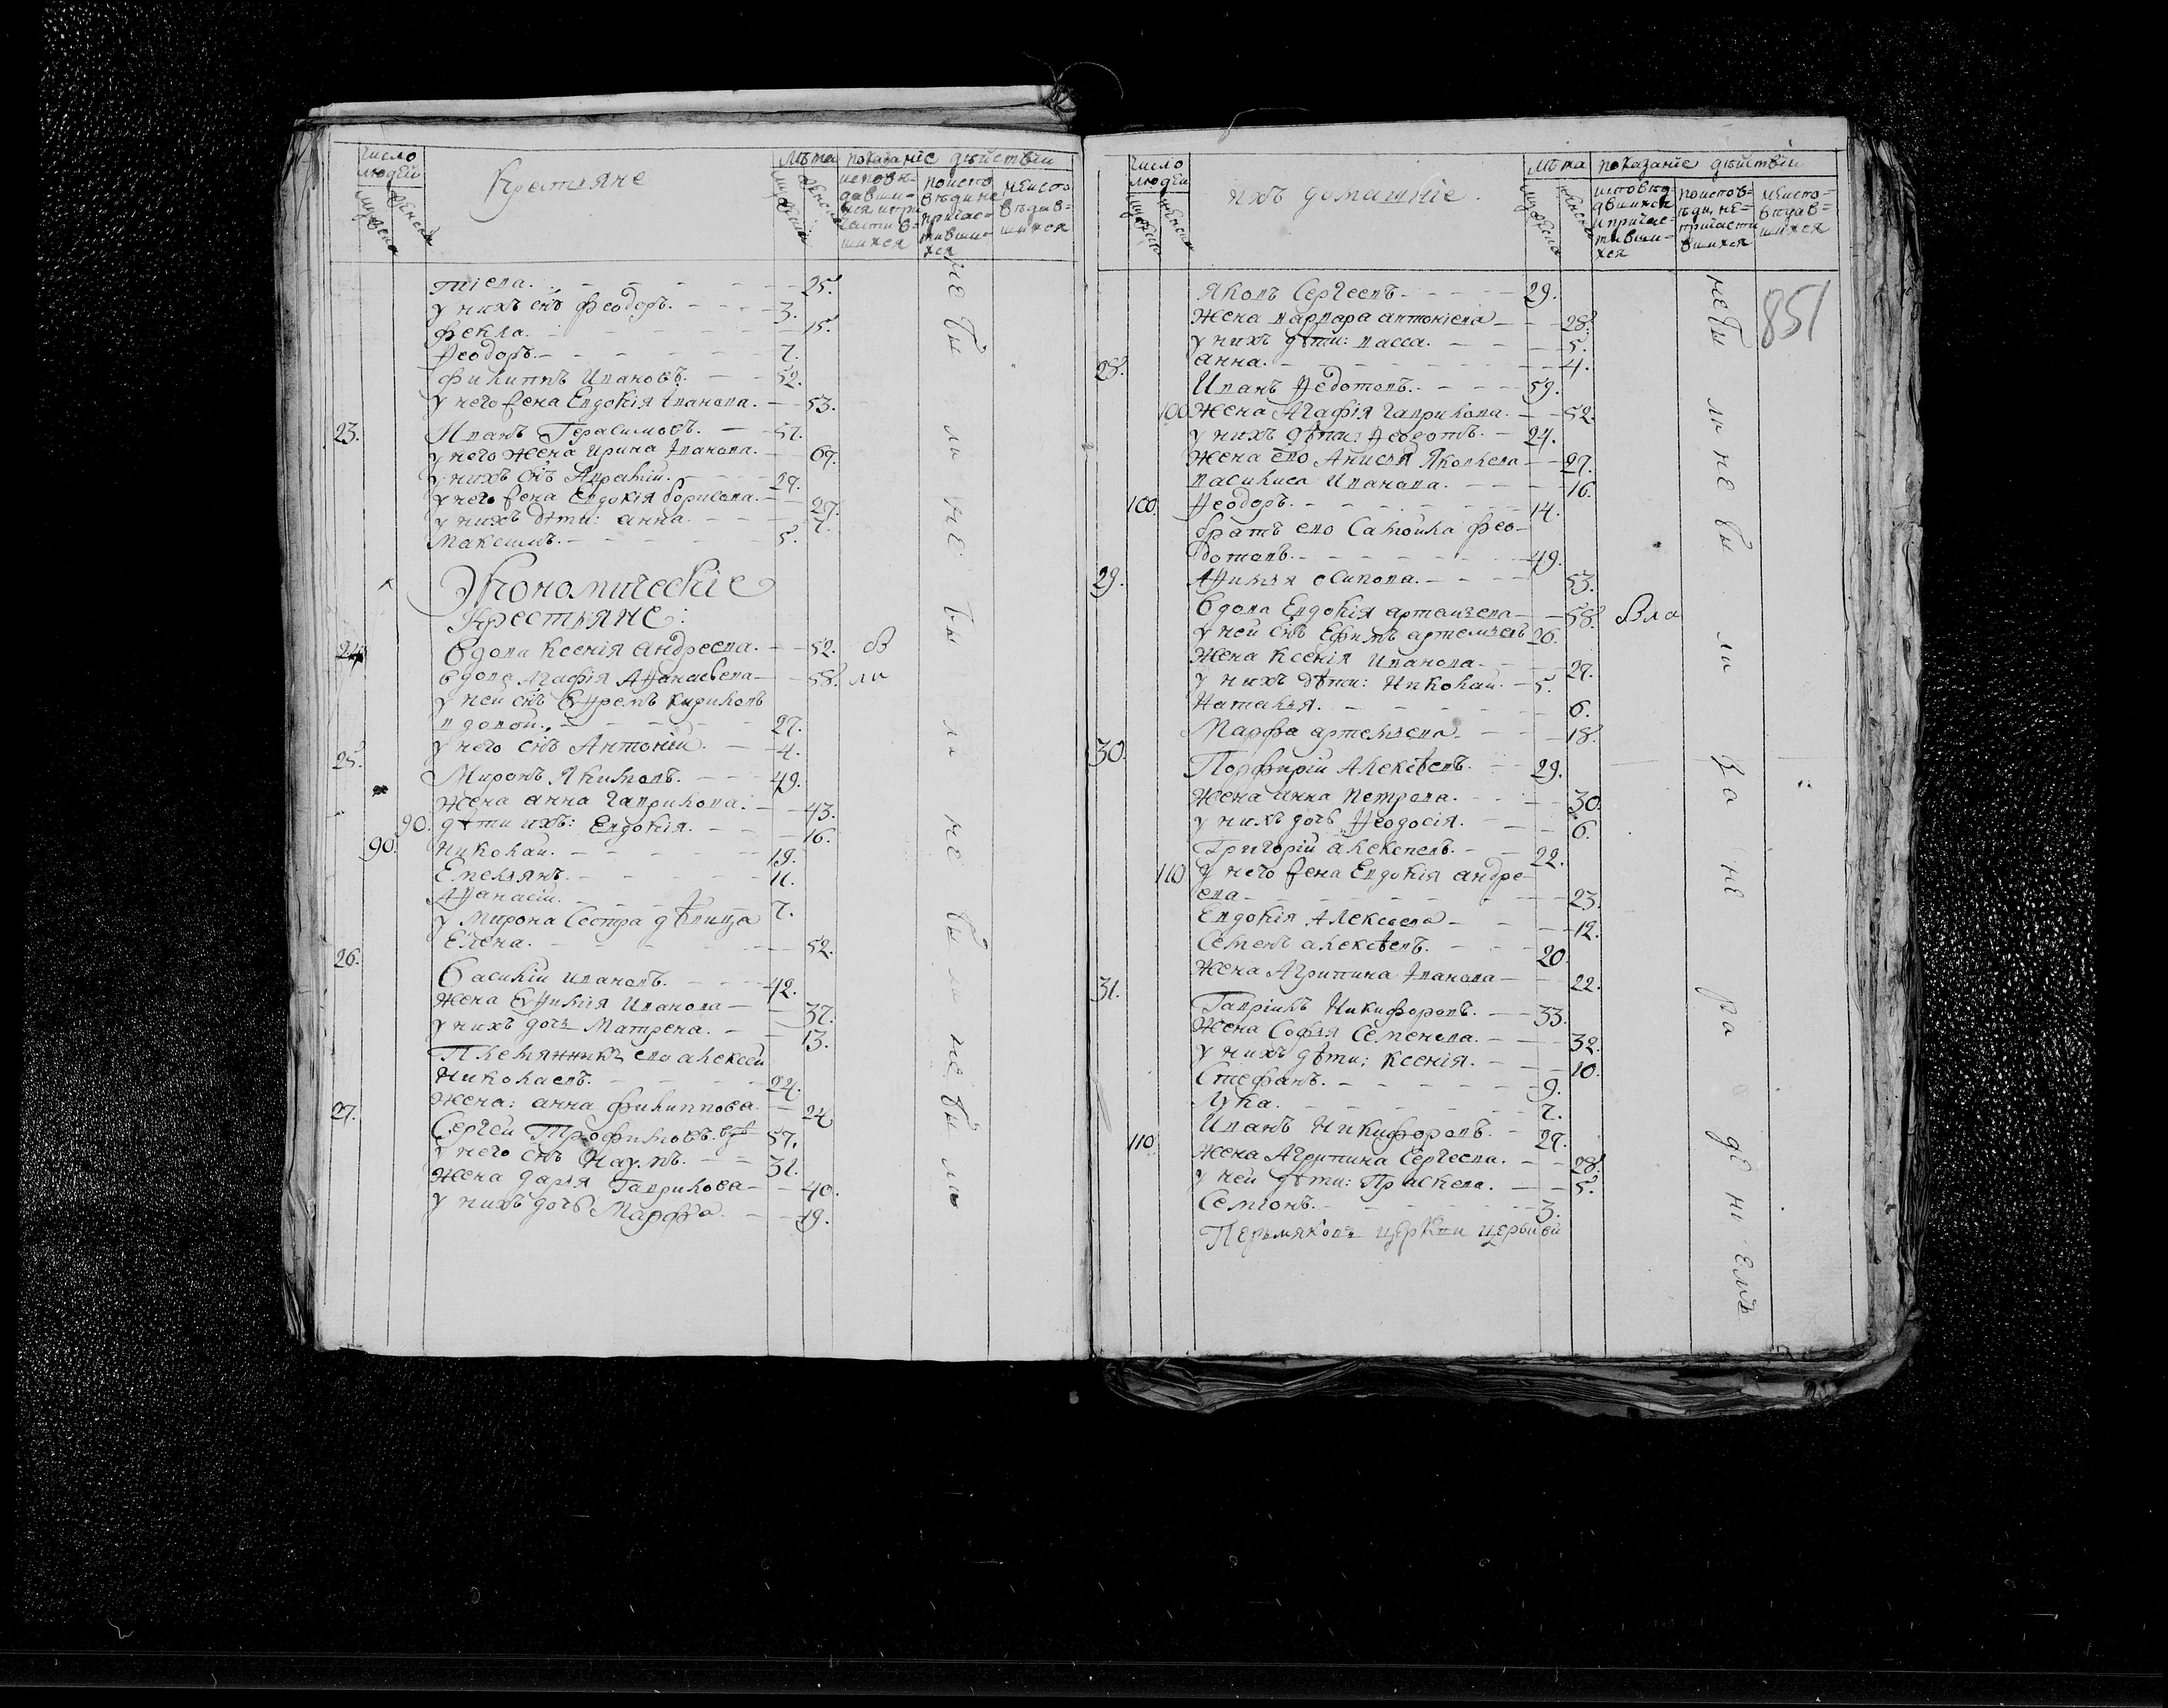 число людей
мужеска
женска
Крестьяне
лѣта
мужеска
женска
показаніе дѣйствіи
исповѣдавшихся и причастившихся
по исповѣди не причастившихся
не исповѣдавшихся
тіева. 25.
у нихъ снъ Феодоръ. 3.
Фекла. 15.
Ѳеодоръ. 7.
Филиппъ Ивановъ. 52.
у него жена Евдокія Іванова. 53.
23. Иванъ Герасимовъ. 57.
у него жена Ирина Іванова. 67.
у нихъ снъ Авратій. 29.
у него жена Евдокія Борисова. 27.
у нихъ дѣти: анна. 7.
Максимъ. 5.
Экономическіе
Крестьяне:
24 вдова Ксенія Андреева. 52. бы
вдова Агафія Аѳанасьева 58. ли
у ней снъ Еѳремъ Кириловъ
вдовой. 27.
у него снъ Антоній. 4.
25. Миронъ Якимовъ. 49.
Жена анна Гаврилова. 43.
90. дѣти ихъ: Евдокія. 16.
90. Николай. 19.
Емельянъ. 11.
Аѳанасій. 7.
у Мирона Сестра дѣвица
Елена. 52.
26. Василій Ивановъ. 42.
жена Еѵѳимія Иванова 37.
у нихъ дочь Матрена. 13.
Племянникъ ево алексѣй
Николаевъ. 24.
Жена: анна Филиппова. 24
27. Сергей Трофимовъ. вдв 57.
у него снъ Наумъ. 31.
жена дарья Гаврилова 40.
у нихъ дочь Марфа. 19.
не бы ли не бы ли не бы ли не бы ли
число людей
мужеска
женска
ихъ домашніе.
лѣта
мужеска
женска
показаніе дѣйствіи
исповѣдавшихся и причастившихся
по исповѣди не причастившихся
не исповѣдавшихся
851
Яковъ Сергеевъ. 29.
жена варвара антоніева 28.
у нихъ дѣти: васса. 5.
анна. 4.
28. Иванъ Ѳедотовъ. 59.
100 жена Агафія Гаврилова. 52.
у нихъ дѣти: Ѳеодотъ. 24.
жена ево Анисья Яковлева 27.
василиса Иванова. 16.
100. Ѳеодоръ. 14.
братъ ево Самойла Фео-
дотовъ. 49.
29. Аѳимья осипова. 53.
вдова Евдокія артемьева 58. Была
у ней снъ Ефимъ артемьевъ 26.
жена Ксенія Иванова 27.
у нихъ дѣти: Николай. 5.
Наталья. 6.
Марфа артемьева. 18.
30. Порфирій Алексѣевъ. 29.
жена анна Петрова. 30.
у нихъ дочь Ѳеодосія. 6.
Григорій алексеевъ. 22.
110 у него жена Евдокія андре-
ева 23.
Евдокія Алексеева 12.
Семенъ алексѣевъ. 20.
жена Агрипина Іванова 22.
31. Гавріилъ Никифоровъ. 33.
жена Софья Семенова. 32.
у нихъ дѣти: Ксенія. 10.
Стефанъ. 9.
Лука. 7.
Иванъ Никифоровъ. 27.
110. жена Агрипина Сергеева. 28.
у ней дѣти: Праскева. 5.
Семіонъ. 3.
не бы ли не бы ли за не ра де ні емъ